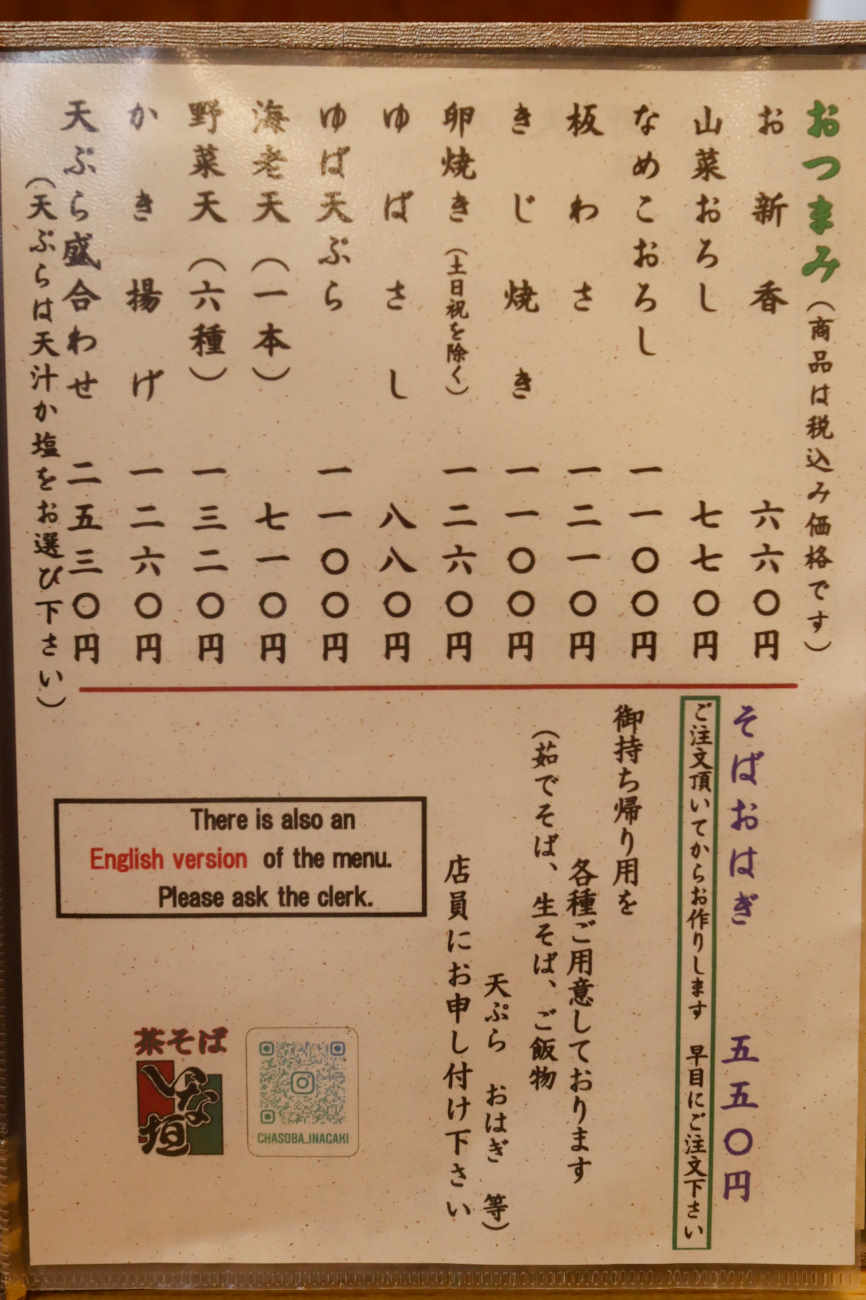 おつまみ（商品は税込み価格です）
お新香 六六〇円
山菜おろし 七七〇円
なめこおろし 一一〇〇円
板わさ 一二一〇円
きじ焼き 一一〇〇円
卵焼き（土日祝を除く） 一二六〇円
ゆばさし 八八〇円
ゆば天ぷら 一一〇〇円
海老天（一本） 七一〇円
野菜天（六種） 一三二〇円
かき揚げ 一二六〇円
天ぷら盛合わせ 二五三〇円
（天ぷらは天汁か塩をお選び下さい）
そばおはぎ 五五〇円
ご注文頂いてからお作りします 早目にご注文下さい
御持ち帰り用を
各種ご用意しております
（茹でそば、生そば、ご飯物
天ぷら おはぎ 等）
店員にお申し付け下さい
There is also an
English version of the menu.
Please ask the clerk.
茶そば
いな垣
CHASOBA_INAGAKI